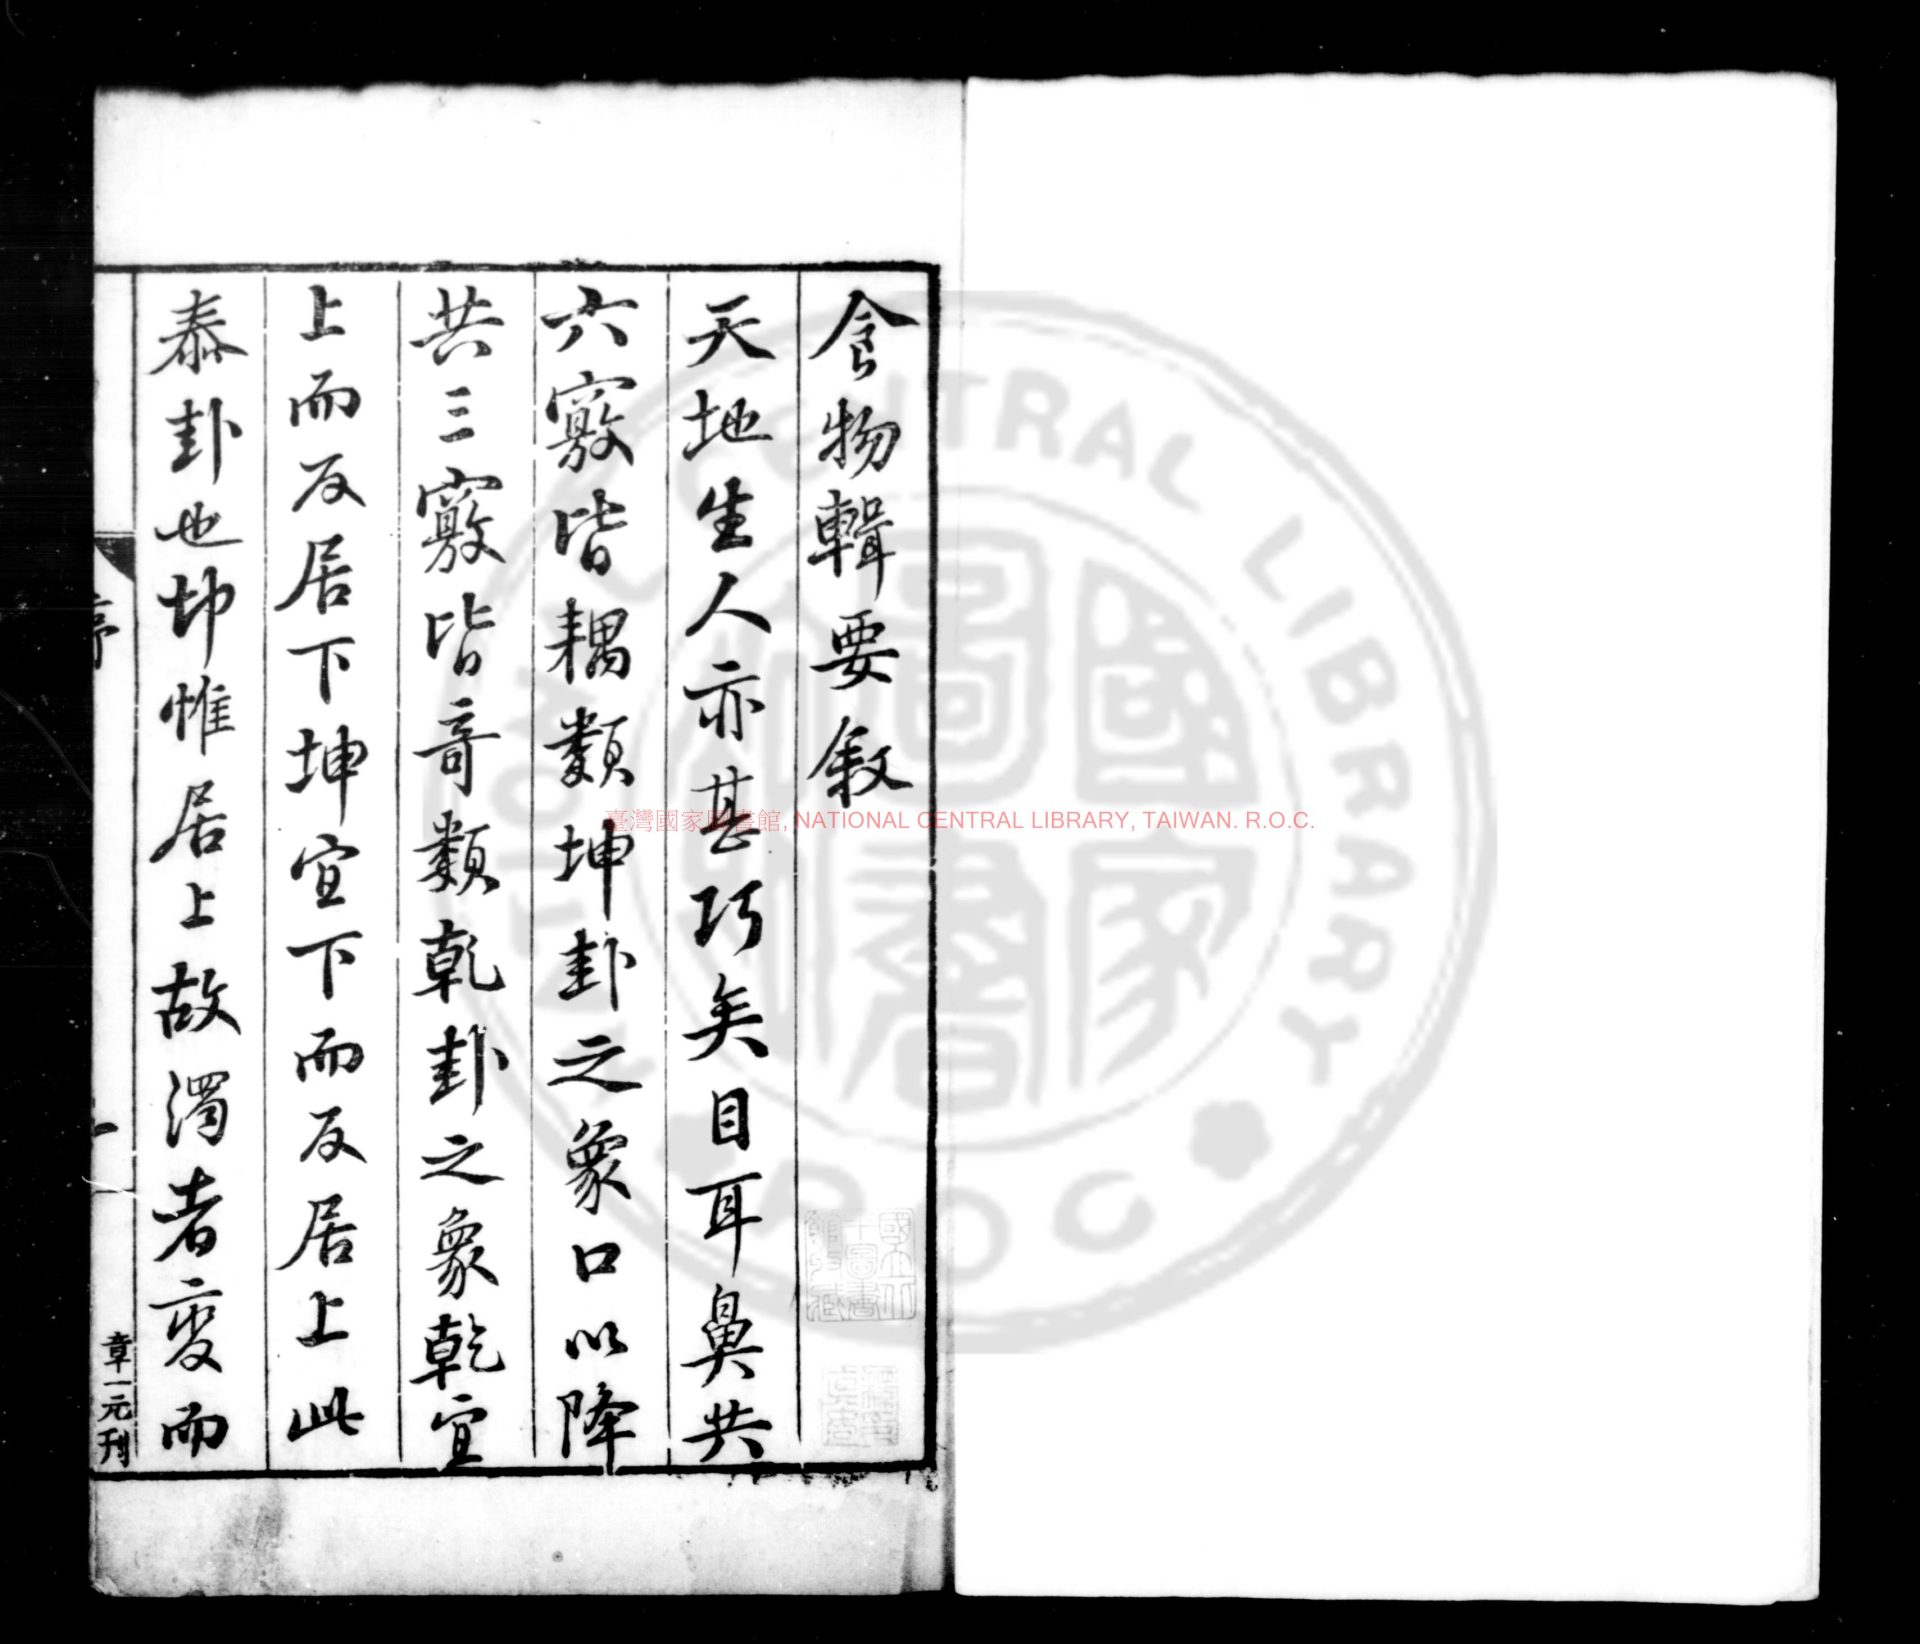 食物輯要敘
天地生人亦甚巧矣目耳鼻共
六竅皆耦類坤卦之象口以降
共三竅皆奇類乾卦之象乾宜
上而反居下坤宜下而反居上此
泰卦也坤惟居上故濁者變而
序
一
章一元刊
臺灣國家圖書館, NATIONAL CENTRAL LIBRARY, TAIWAN. R.O.C.
NATIONAL CENTRAL LIBRARY R O C
國家圖書